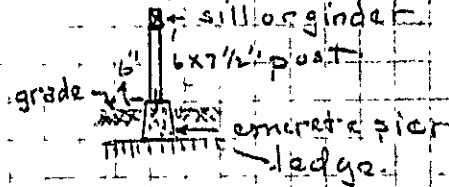 sill or girder
6"
6x7½" post
grade
concrete pier
ledge.